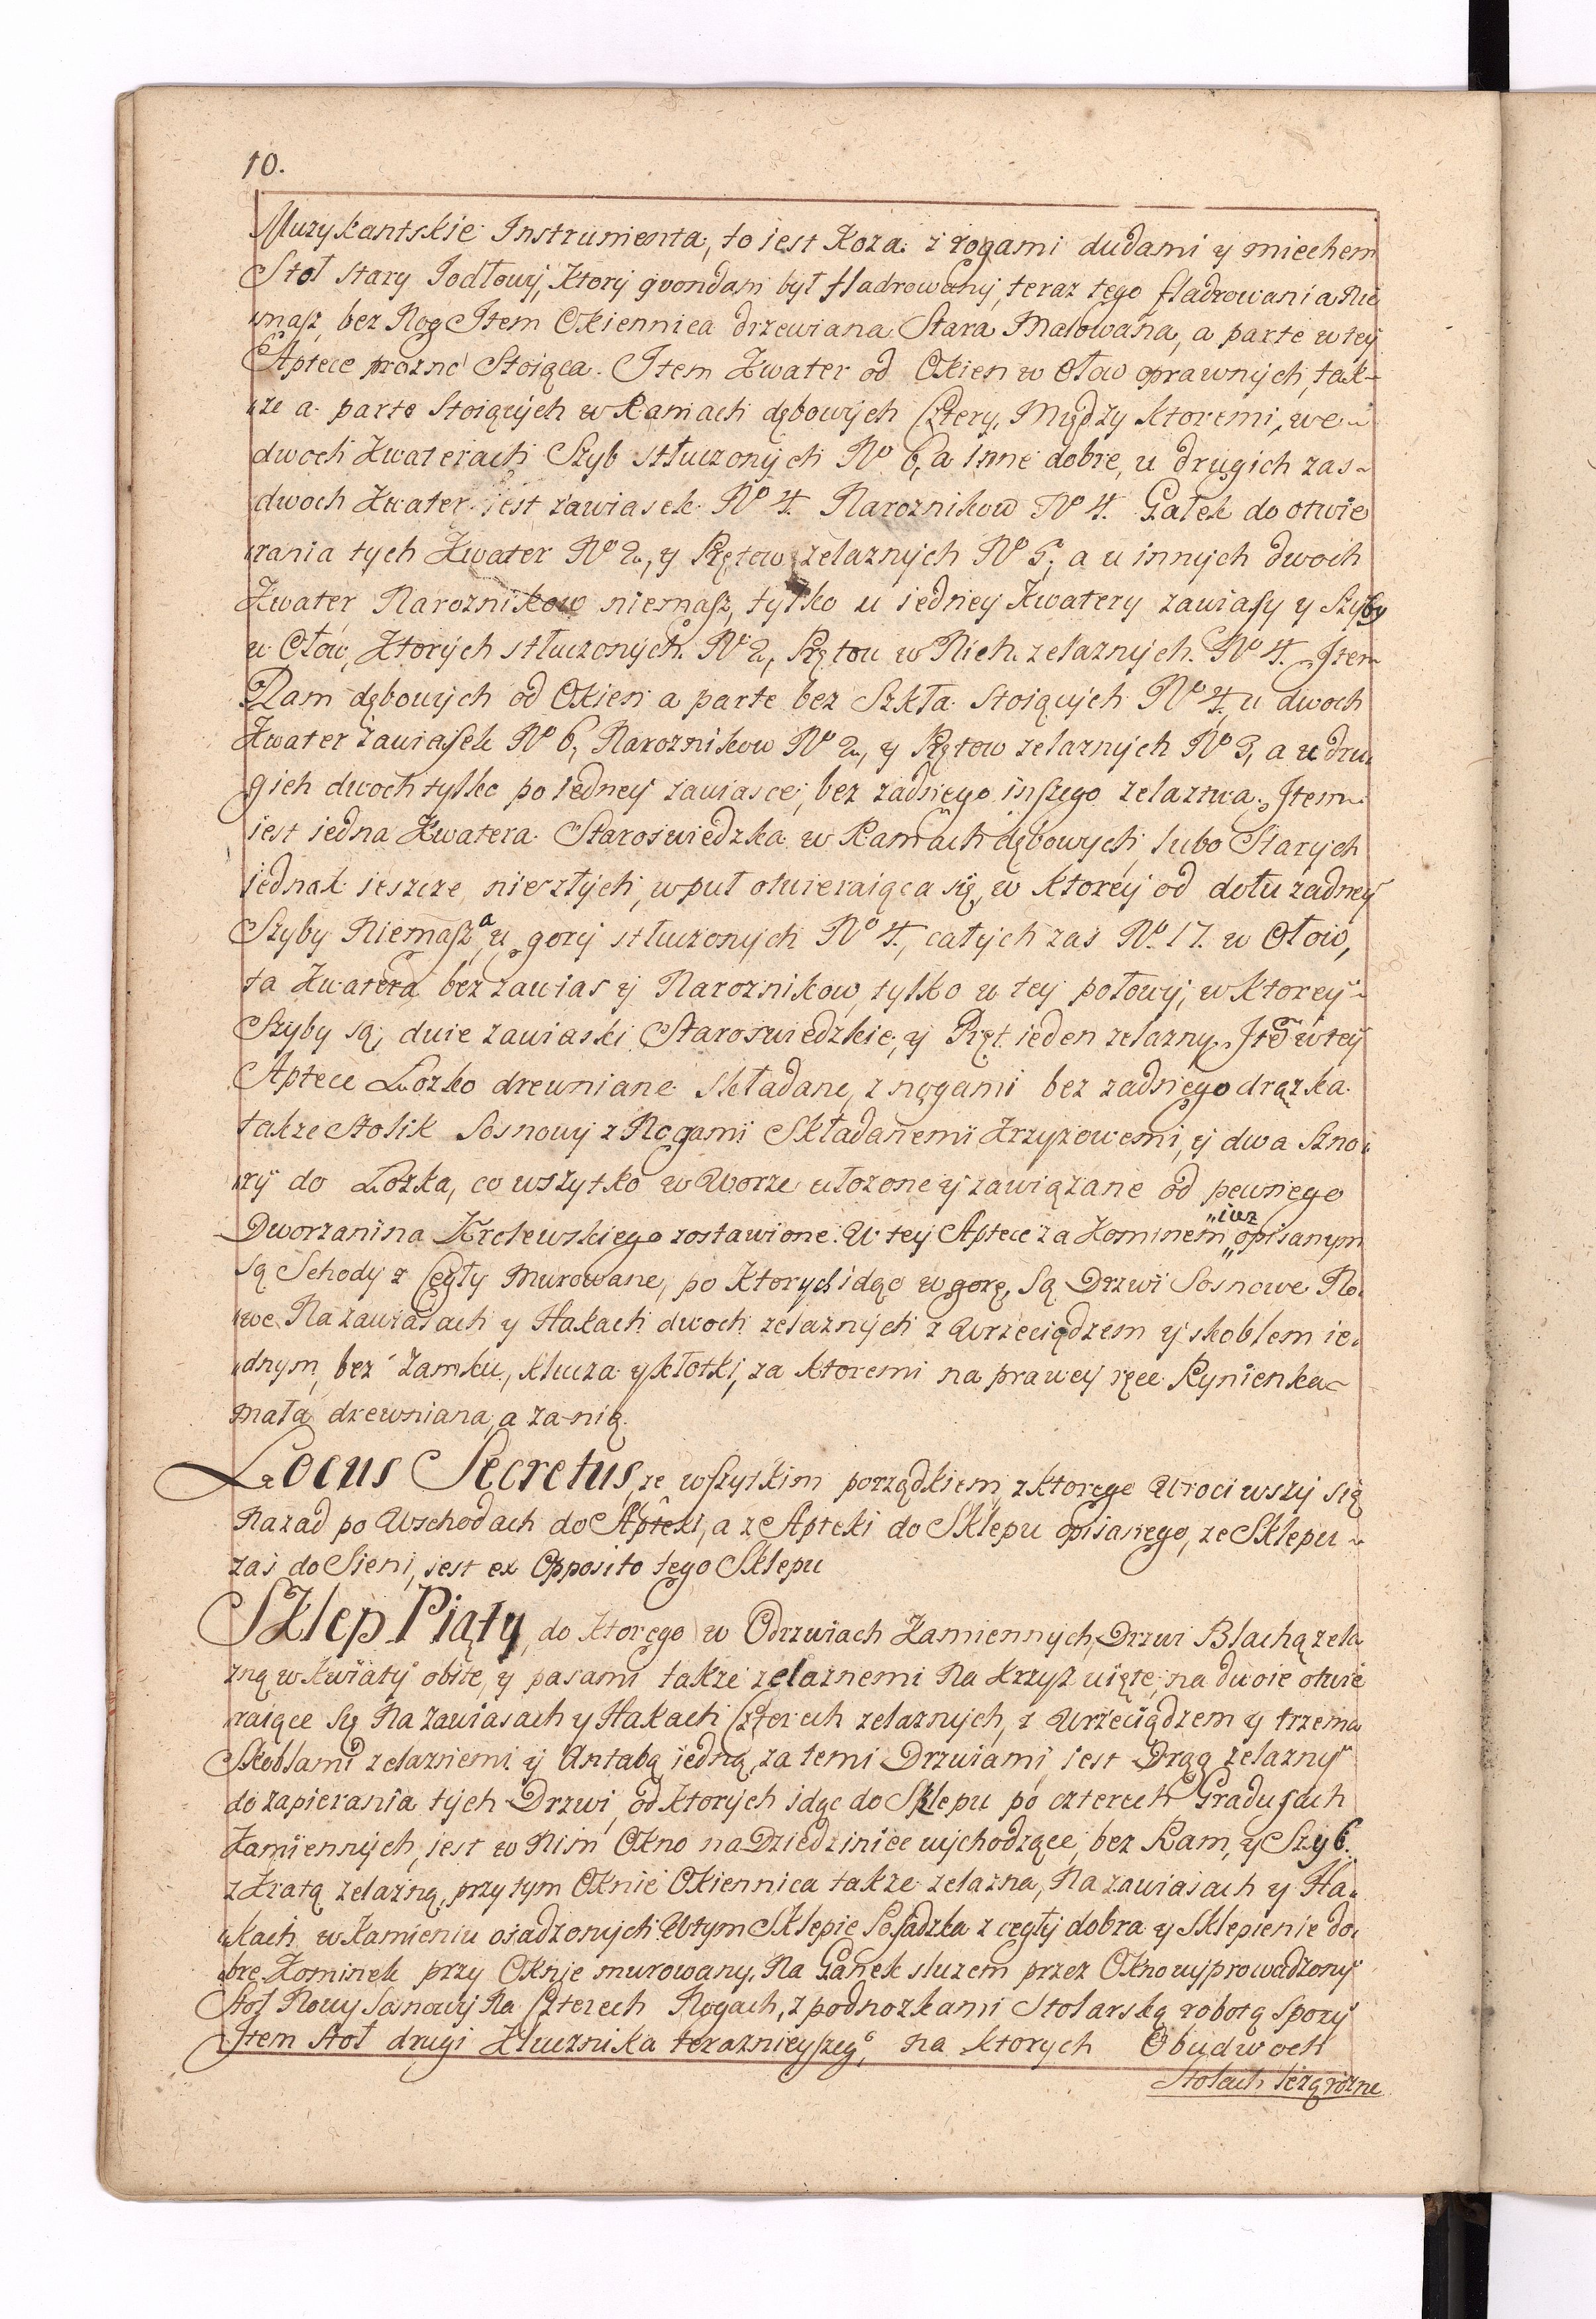 10.
Muzykantskie Instrumenta, to iest Koza z rogami dudami y miechem
Stoł stary Jodłowy, Ktory quondam był fladrowany, teraz tego fladrowania Nie
masz, bez Nog Item Okiennica drzewiana Stara Malowana, a parte w tey
Aptece prozno Stoiąca. Item Kwater od Okien w Ołow oprawnych, tak-
że a parte Stoiących w Ramach dębowych Cztery, Między ktoremi, we-
dwoch Kwaterach Szyb stłuczonych No 6, a inne dobre, u drugich zas-
dwoch Kwater iest zawiasek No 4. Naroznikow No 4. Gałek do otwie
rania tych Kwater No 2, y Prętow zelaznych No 5, a u innych dwoch
Kwater Naroznikow niemasz, tylko u iedney Kwatery zawiasy y Szyby
w Ołow, Ktorych stłuczonych No 2, Prętow w Nich zelaznych No 4. Item
Ram dębowych od Okien a parte bez Szkła stoiących No 4, u dwoch
Kwater zawiasek No 6, Naroznikow No 2, y Prętow zelaznych No 3, a u dru
gich dwoch tylko po iedney zawiasce, bez zadnego inszego zelaztwa. Item
iest iedna Kwatera Staroswiedzka w Ramach dębowych, lubo Starych
iednak ieszcze niezłych, wpuł otwieraiąca się, w Ktorey od dołu zadney
Szyby Niemasz, a u gory stłuczonych No 4, całych zas No 17. w Ołow,
ta Kwatera bez zawias y Naroznikow, tylko u tey połowy, w Ktorey-
Szyby są, dwie zawiaski Staroswiedzkie, y Pręt ieden zelazny. Itẽ w tey
Aptece Lozko drewniane składane, z nogami bez zadnego drązka
takze stolik Sosnowy z Nogami Składanemi Krzyzowemi, y dwa Sznu
ry do Lozka, co wszytko w Worze ułozone y zawiązane od pewnego
Dworzanina Krolewskiego zostawione. W tey Aptece za Kominem iuz opisanym
są Schody z Cegły Murowane, po Ktorych idąc w gorę, Są Drzwi Sosnowe No
we Na zawiasach y Hakach dwoch zelaznych z Wrzeciądzem y skoblem ie
dnym, bez Zamku, klucza y kłotki, za ktoremi na prawey ręce Rynienka-
mała drewniana, a za nią
Locus Secretus, ze wszytkim porządkiem, z ktorego Wrociwszy się
Nazad po Wschodach do Apteki, a ze Apteki do Sklepu opisanego, ze Sklepu-
zas do Sieni, iest ex Opposito tego Sklepu
Sklep Piąty, do Ktorego w Odrzwiach Kamiennych, Drzwi Blachą zela
zną w Kwiaty obite, y pasami takze zelaznemi Na Krzyz uięte, na dwoie otwie
raiące się Na zawiasach y Hakach Czterech zelaznych, z Wrzeciądzem y trzema
Skoblami zelaznemi y Antabą iedną, za temi Drzwiami, iest Drąg zelazny
do zapierania tych Drzwi, od Ktorych idąc do Sklepu po czterech Gradusach
Kamiennych, iest w Nim Okno na Dziedziniec wychodzące, bez Ram, y Szyb.
z Kratą zelazną, przy tym Oknie Okiennica takze zelazna, Na zawiasach y Ha
kach w Kamieniu osadzonych. W tym Sklepie Posadzka z cegły dobra y Sklepienie do
bre. Kominek przy Oknie murowany, Na Ganek sluzem przez Okno wyprowadzony
Stoł Nowy Sosnowy Na Czterech Nogach, z podnozkami Stolarską robotą Spory
Item stoł drugi Klucznika teraznieyszego, na ktorych Obudwoch
Stołach lezą rozne